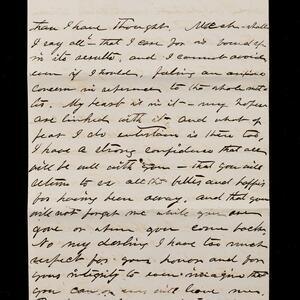 than I have thought. Much—shall
I say all—that I care for is bound up
in its results, and I cannot avoid
even if I should, feeling an
concern in reference to the whole mat-
ter. My heart is in it—my hopes
are linked with it—and what of
fear I do entertain is there too,
I have a strong confidence that all
will be well with you—that you will
return to us all the better and happier
for having been away, and that you
will not forget me while you are
gone or when you come back.
No my darling I have too much
respect for your honor and for
your integrity to even imagine that
you can, or ever will leave me.